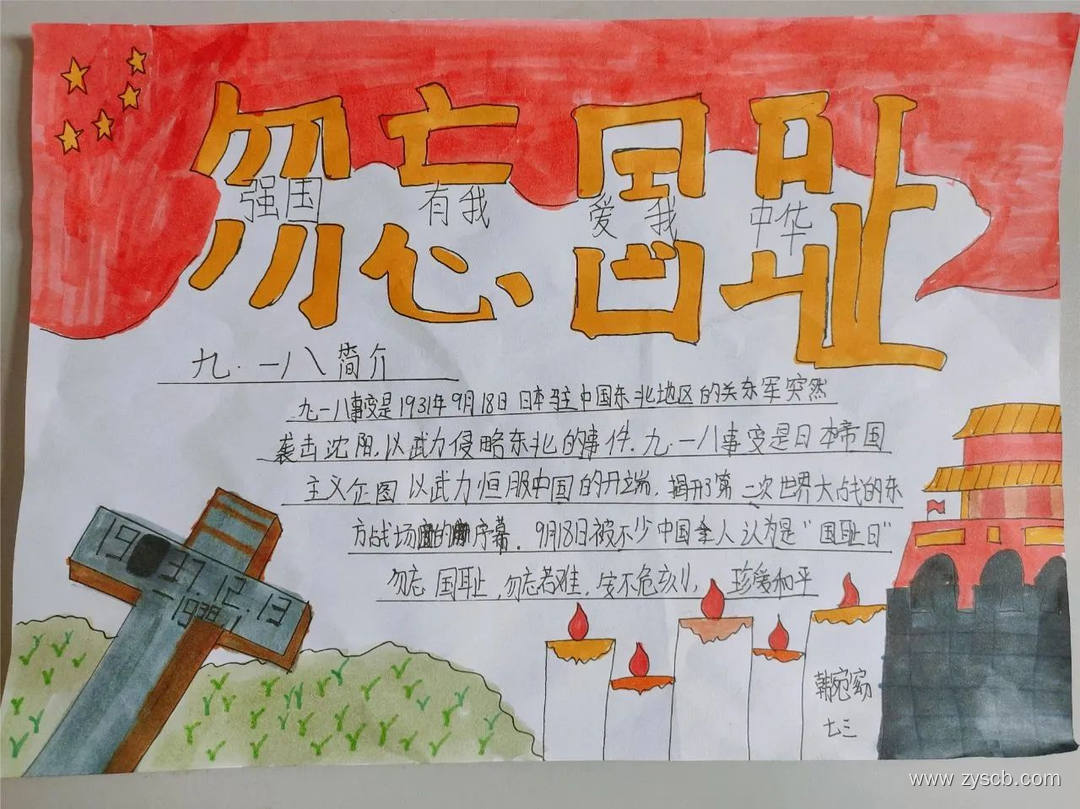 勿忘国耻
强国 有我 爱我 中华
九·一八简介
九一八事变是1931年9月18日日本驻中国东北地区的关东军突然
袭击沈阳,以武力侵略东北的事件.九·一八事变是日本帝国
主义企图以武力征服中国的开端,揭开了第二次世界大战的东
方战场的序幕.9月18日被不少中国人认为是"国耻日"
勿忘国耻,勿忘苦难,安不危,珍爱和平
1937.12.13
-1938.1
韩宛
七三
www.zyscb.com